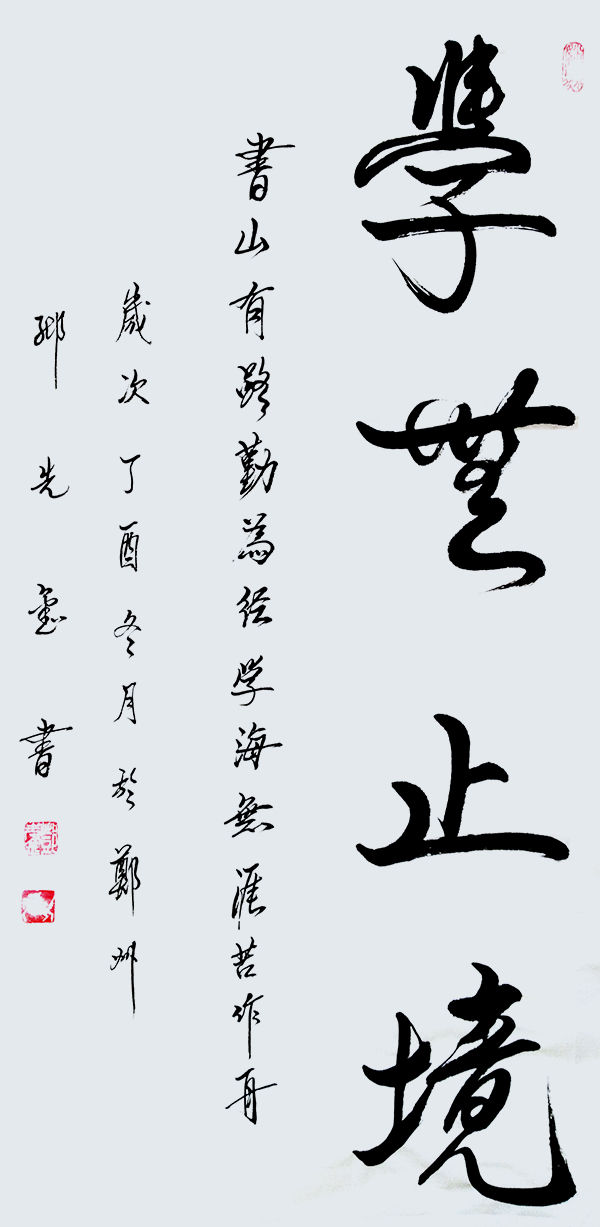 學無止境
書山有路勤為径学海無涯苦作舟
歲次丁酉冬月於鄭州
先書